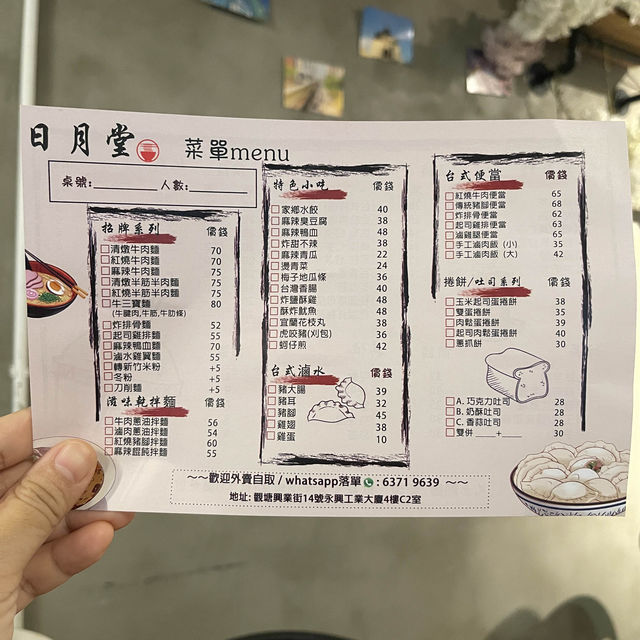 日月堂 菜單menu
桌號:________ 人數:________
招牌系列 價錢
清燉牛肉麵 70
紅燒牛肉麵 70
麻辣牛肉麵 75
清燉半筋半肉麵 75
紅燒半筋半肉麵 75
牛三寶麵 80
(牛腱肉,牛筋,牛肋條)
炸排骨麵 52
起司雞排麵 55
麻辣鴨血麵 70
滷水雞翼麵 55
轉新竹米粉 +5
冬粉 +5
刀削麵 +5
滋味乾拌麵 價錢
牛肉蔥油拌麵 56
滷肉蔥油拌麵 54
紅燒豬腳拌麵 60
麻辣餛飩拌麵 55
特色小吃 價錢
家鄉水餃 40
麻辣臭豆腐 38
麻辣鴨血 48
炸甜不辣 38
麻辣青瓜 22
燙青菜 24
梅子地瓜條 36
台灣香腸 40
炸鹽酥雞 48
酥炸魷魚 48
宜蘭花枝丸 38
虎咬豬(刈包) 36
蚵仔煎 42
台式滷水 價錢
豬大腸 39
豬耳 32
豬腳 45
雞翅 38
雞蛋 10
台式便當 價錢
紅燒牛肉便當 65
傳統豬腳便當 68
炸排骨便當 62
起司雞排便當 63
滷雞腿便當 65
手工滷肉飯 (小) 35
手工滷肉飯 (大) 42
捲餅/吐司系列 價錢
玉米起司蛋捲餅 38
雙蛋捲餅 35
肉鬆蛋捲餅 39
起司肉鬆蛋捲餅 40
蔥抓餅 30
A. 巧克力吐司 28
B. 奶酥吐司 28
C. 香蒜吐司 28
雙併 ____+____ 30
~~歡迎外賣自取 / whatsapp落單 : 6371 9639 ~~
地址: 觀塘興業街14號永興工業大廈4樓C2室